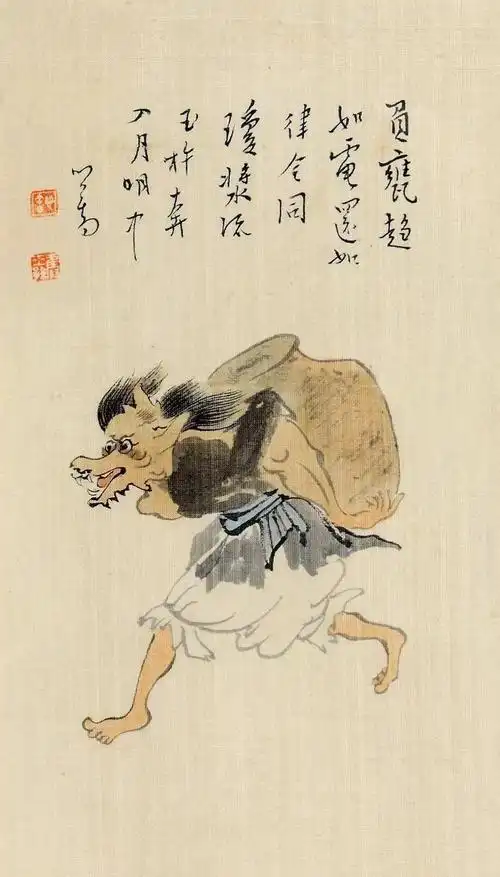 負甕趨
如電還如
律令同
瓊漿流
玉杵奔
入月明中
心畬